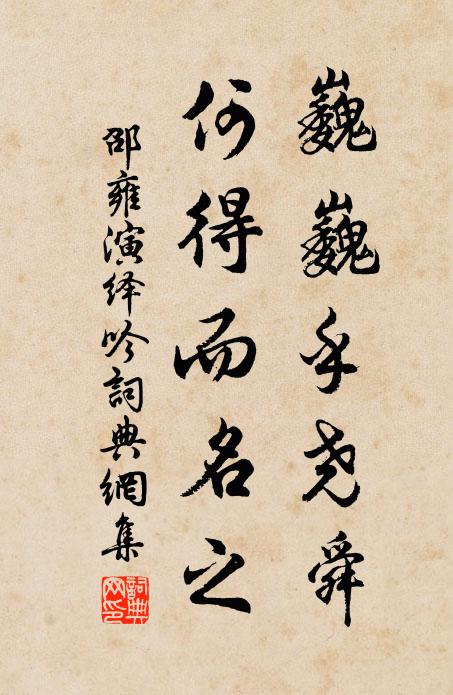 巍巍乎尧舜
何得而名之
邵雍演绎吟詞典網集
詞典网印